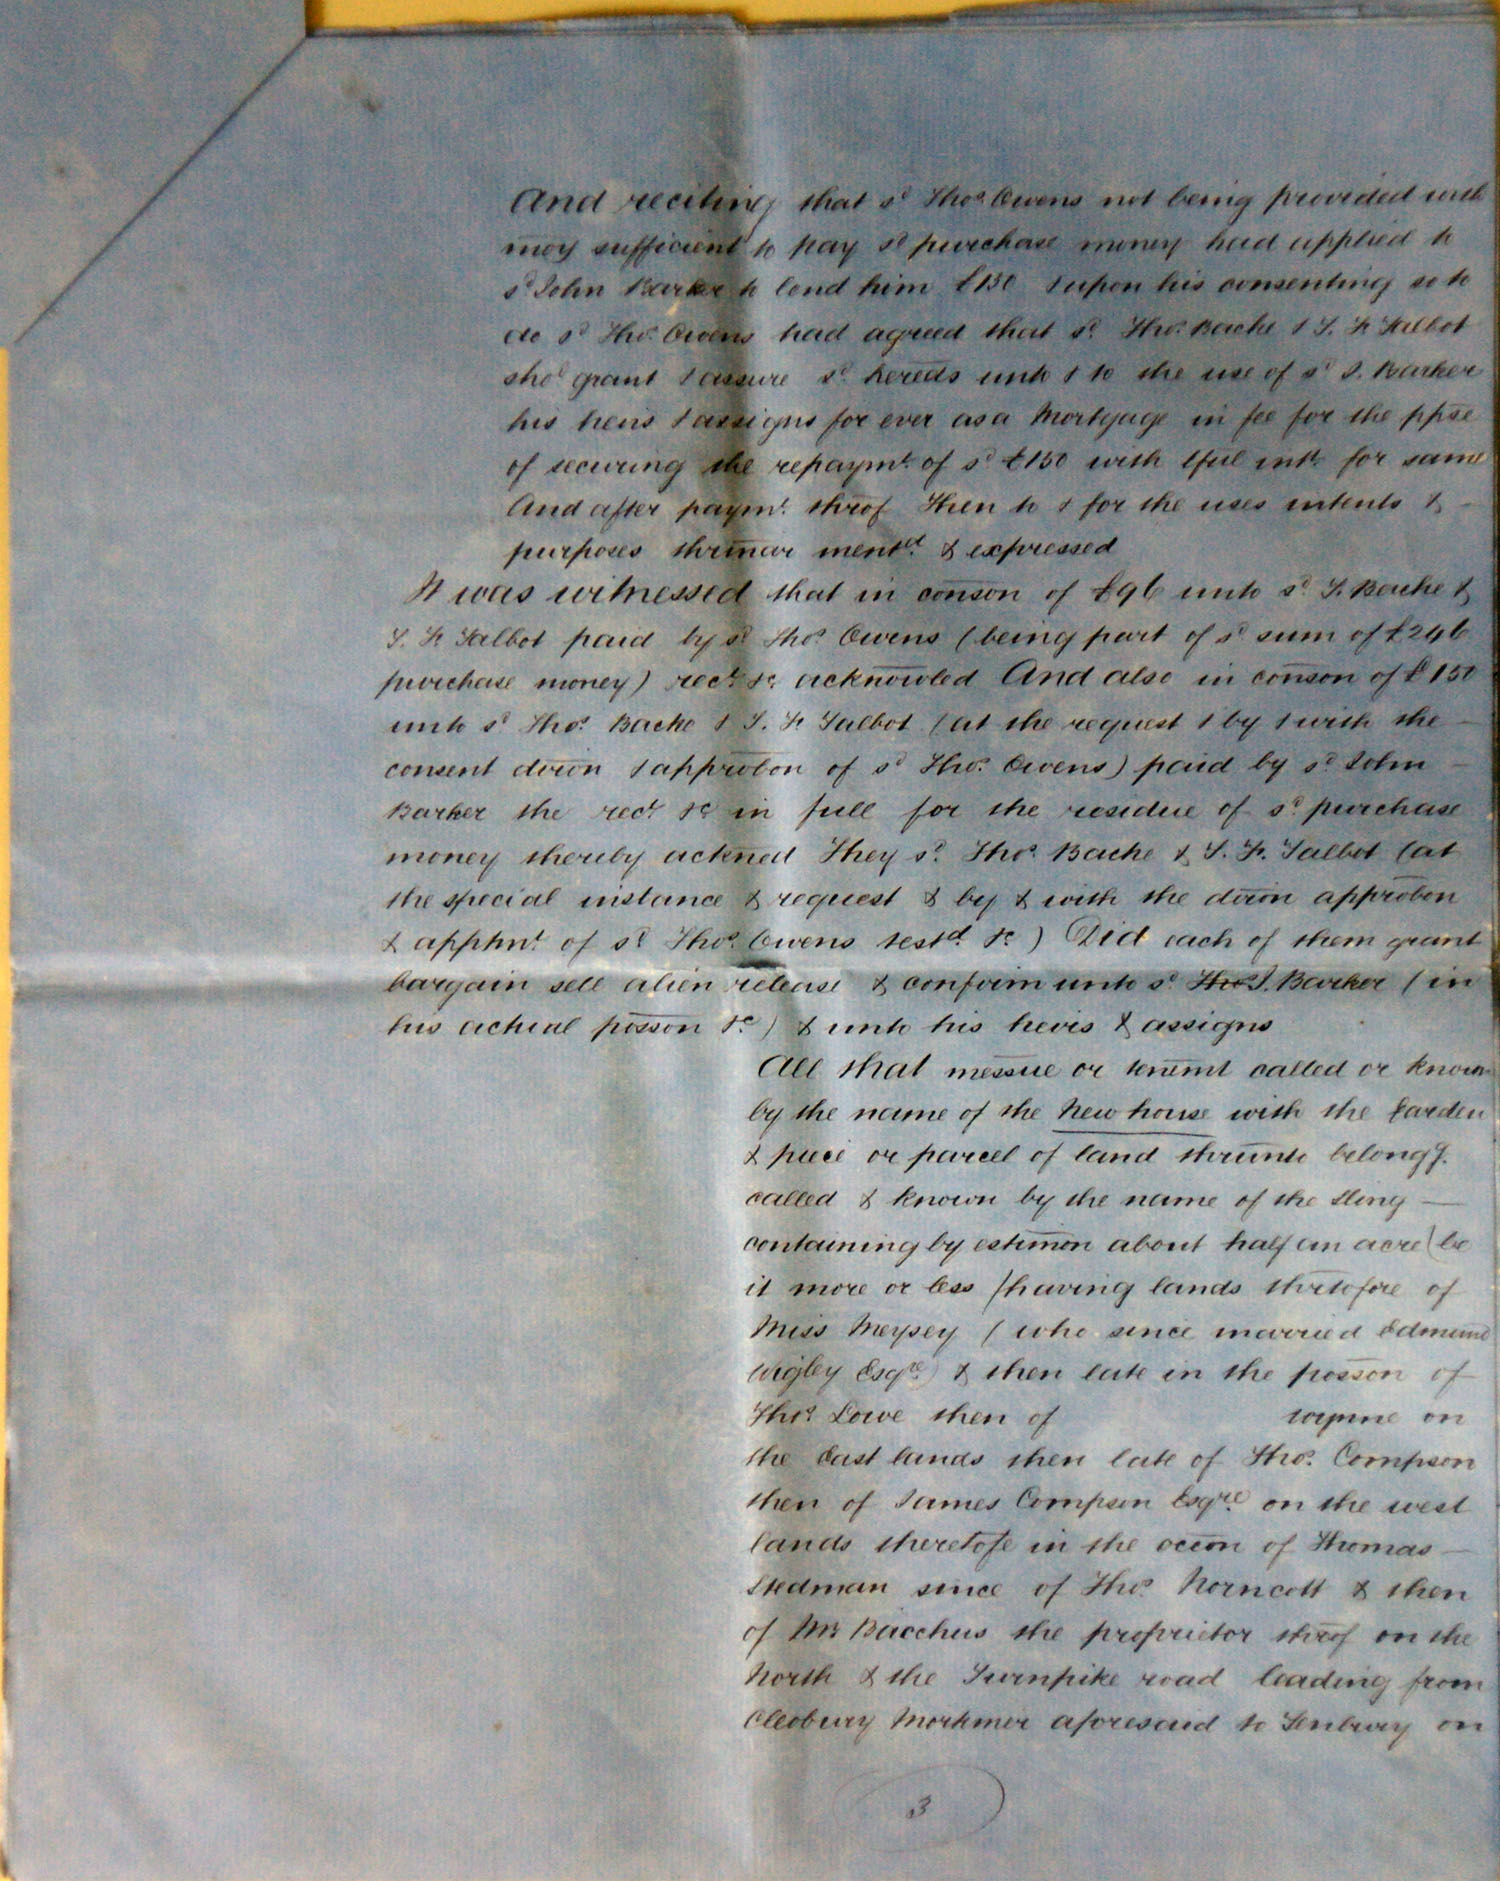 And reciting that sd Thos. Owens not being provided with
moy sufficient to pay sd purchase money had applied to
sd John Barker to lend him £150 & upon his consenting so to
do sd Thos. Owens had agreed that sd Thos. Bache & T. F. Talbot
shod grant & assure sd hereds unto & to the use of sd J. Barker
his heirs & assigns for ever as a Mortgage in fee for the ppse
of securing the repaymt. of sd £150 with lful intt. for same
And after paymt. throf Then to & for the uses intents &
purposes thrinar mentd. & expressed
It was witnessed that in conson of £96 unto sd T. Bache &
T. F. Talbot paid by sd Thos. Owens (being part of sd sum of £246
purchase money) rect. &c. acknowled And also in conson of £150
unto sd Thos. Bache & T. F. Talbot (at the request & by & with the
consent diron & approbon of sd Thos. Owens) paid by sd John
Barker the rect. &c in full for the residue of sd purchase
money thereby ackned They sd. Thos. Bache & T. F. Talbot (at
the special instance & request & by & with the diron approbon
& apptmt. of sd Thos. Owens testd. &c) Did each of them grant
bargain sell alien release & confirm unto sd Thos J. Barker (in
his actual posson &c) & unto his heirs & assigns
All that messue or tenemt called or known
by the name of the New house with the Garden
& piece or parcel of land thrunto belongg.
called & known by the name of the Sling —
containing by estimon about half an acre (be
it more or less) having lands thretofore of
Miss Meysey (who since married Edmund
Wigley Esqre.) & then late in the posson of
Thos. Lowe then of wynne on
the East lands then late of Thos. Compson
then of James Compson Esqre. on the west
lands theretofe in the occon of Thomas —
Stedman since of Thos. Norncott & then
of Mr Bacchus the proprietor throf on the
North & the Turnpike road leading from
Cleobury Mortimer aforesaid to Tenbury on
3